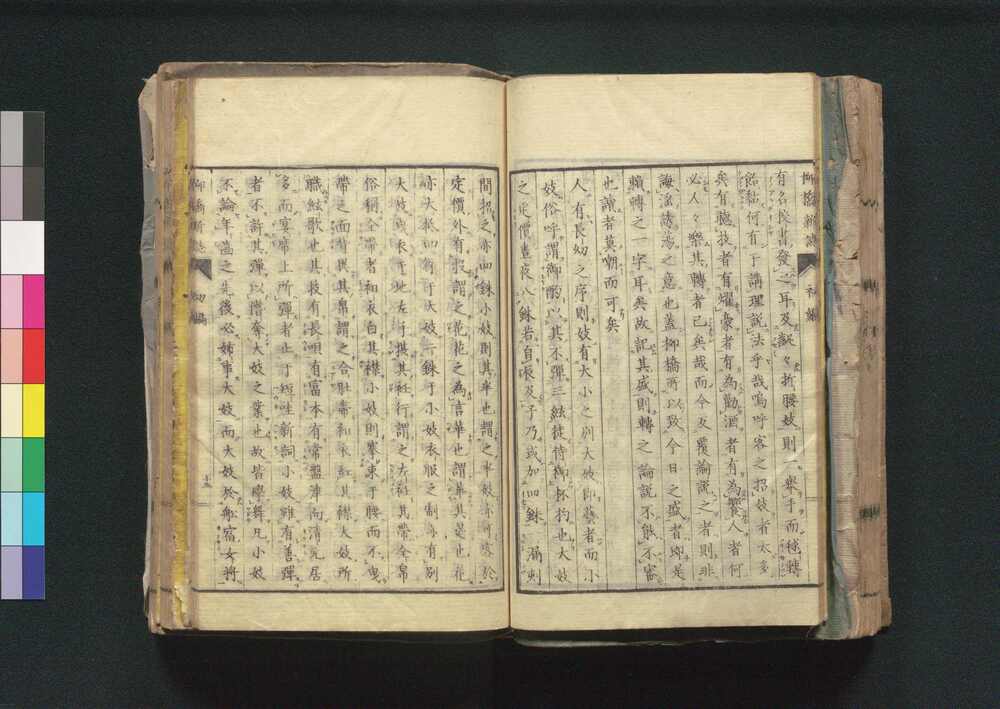 柳橋新誌 初編
有名良書發之耳及試々折腰妓則一舉手而穩轉
何有于講理說法乎哉嗚呼客之招妓者太多
矣有聽技者有耀衆者有為勸酒者有為饗人者何
必人々樂其轉者已矣哉而今反覆論說之者則非
誨淫誘蕩之意也蓋柳橋所以致今日之盛者職是
轉之一字耳矣故記其盛則轉之論說不能不審
也識者莫嘲而可矣
人有長幼之序則妓有大小之別大妓即藝者而小
妓俗呼謂御酌以其不彈三絃徒侍御杯杓也大妓
之定價晝夜八銖若自辰及子乃或加四銖
間招之亦四銖小妓則其半也謂之半妓
定價外有投謂之花花之為言華也謂華其是也花
亦大妓四銖于大妓二銖于小妓衣服之制亦有別
大妓或左手攜其衽行謂之左衽其帶全帛
俗稱全帶者和衣白其襟小妓則褰束于腰而不曳
帶之面背異其帛謂之合肚帶和衣紅其襟大妓所
職絃歌也其技有長唄有富本有常盤津有清元居
多而宴席上所彈者止于短哇新詞小妓雖有善彈
者不許其彈以僭奪大妓之業也故皆學舞凡小妓
不論年齒之先後必姊事大妓而大妓於舟宿女將
柳橋新誌 初編